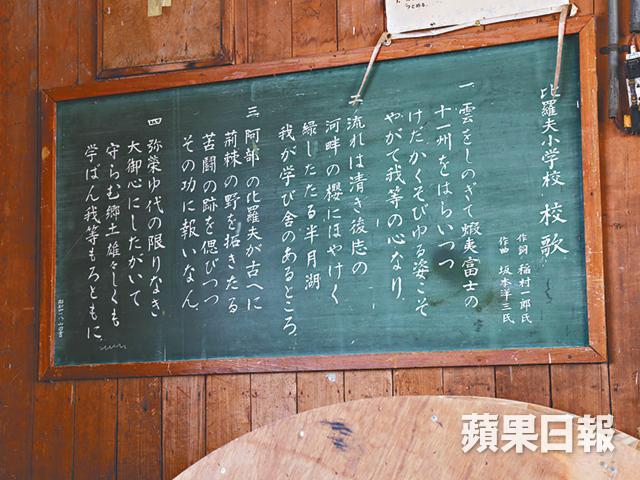 つとめる。
比羅夫小学校 校歌
作詞 稲村一郎氏
作曲 坂本洋三氏
一 雲をしのぎて蝦夷富士の
十一州をはらいつつ
けだかくそびゆる姿こそ
やがて我等の心なり、
二 流れは清き後志の
河畔の櫻にほやけく
緑したたる半月湖
我が学び舎のあるところ、
三 阿部の比羅夫が古へに
荊棘の野を拓きたる
苦闘の跡を偲びつつ
その功に報いなん、
四 弥栄ゆ代の限りなき
大御心にしたがいて
守らむ郷土雄々しくも
学ばん我等もろともに、
蘋果日報